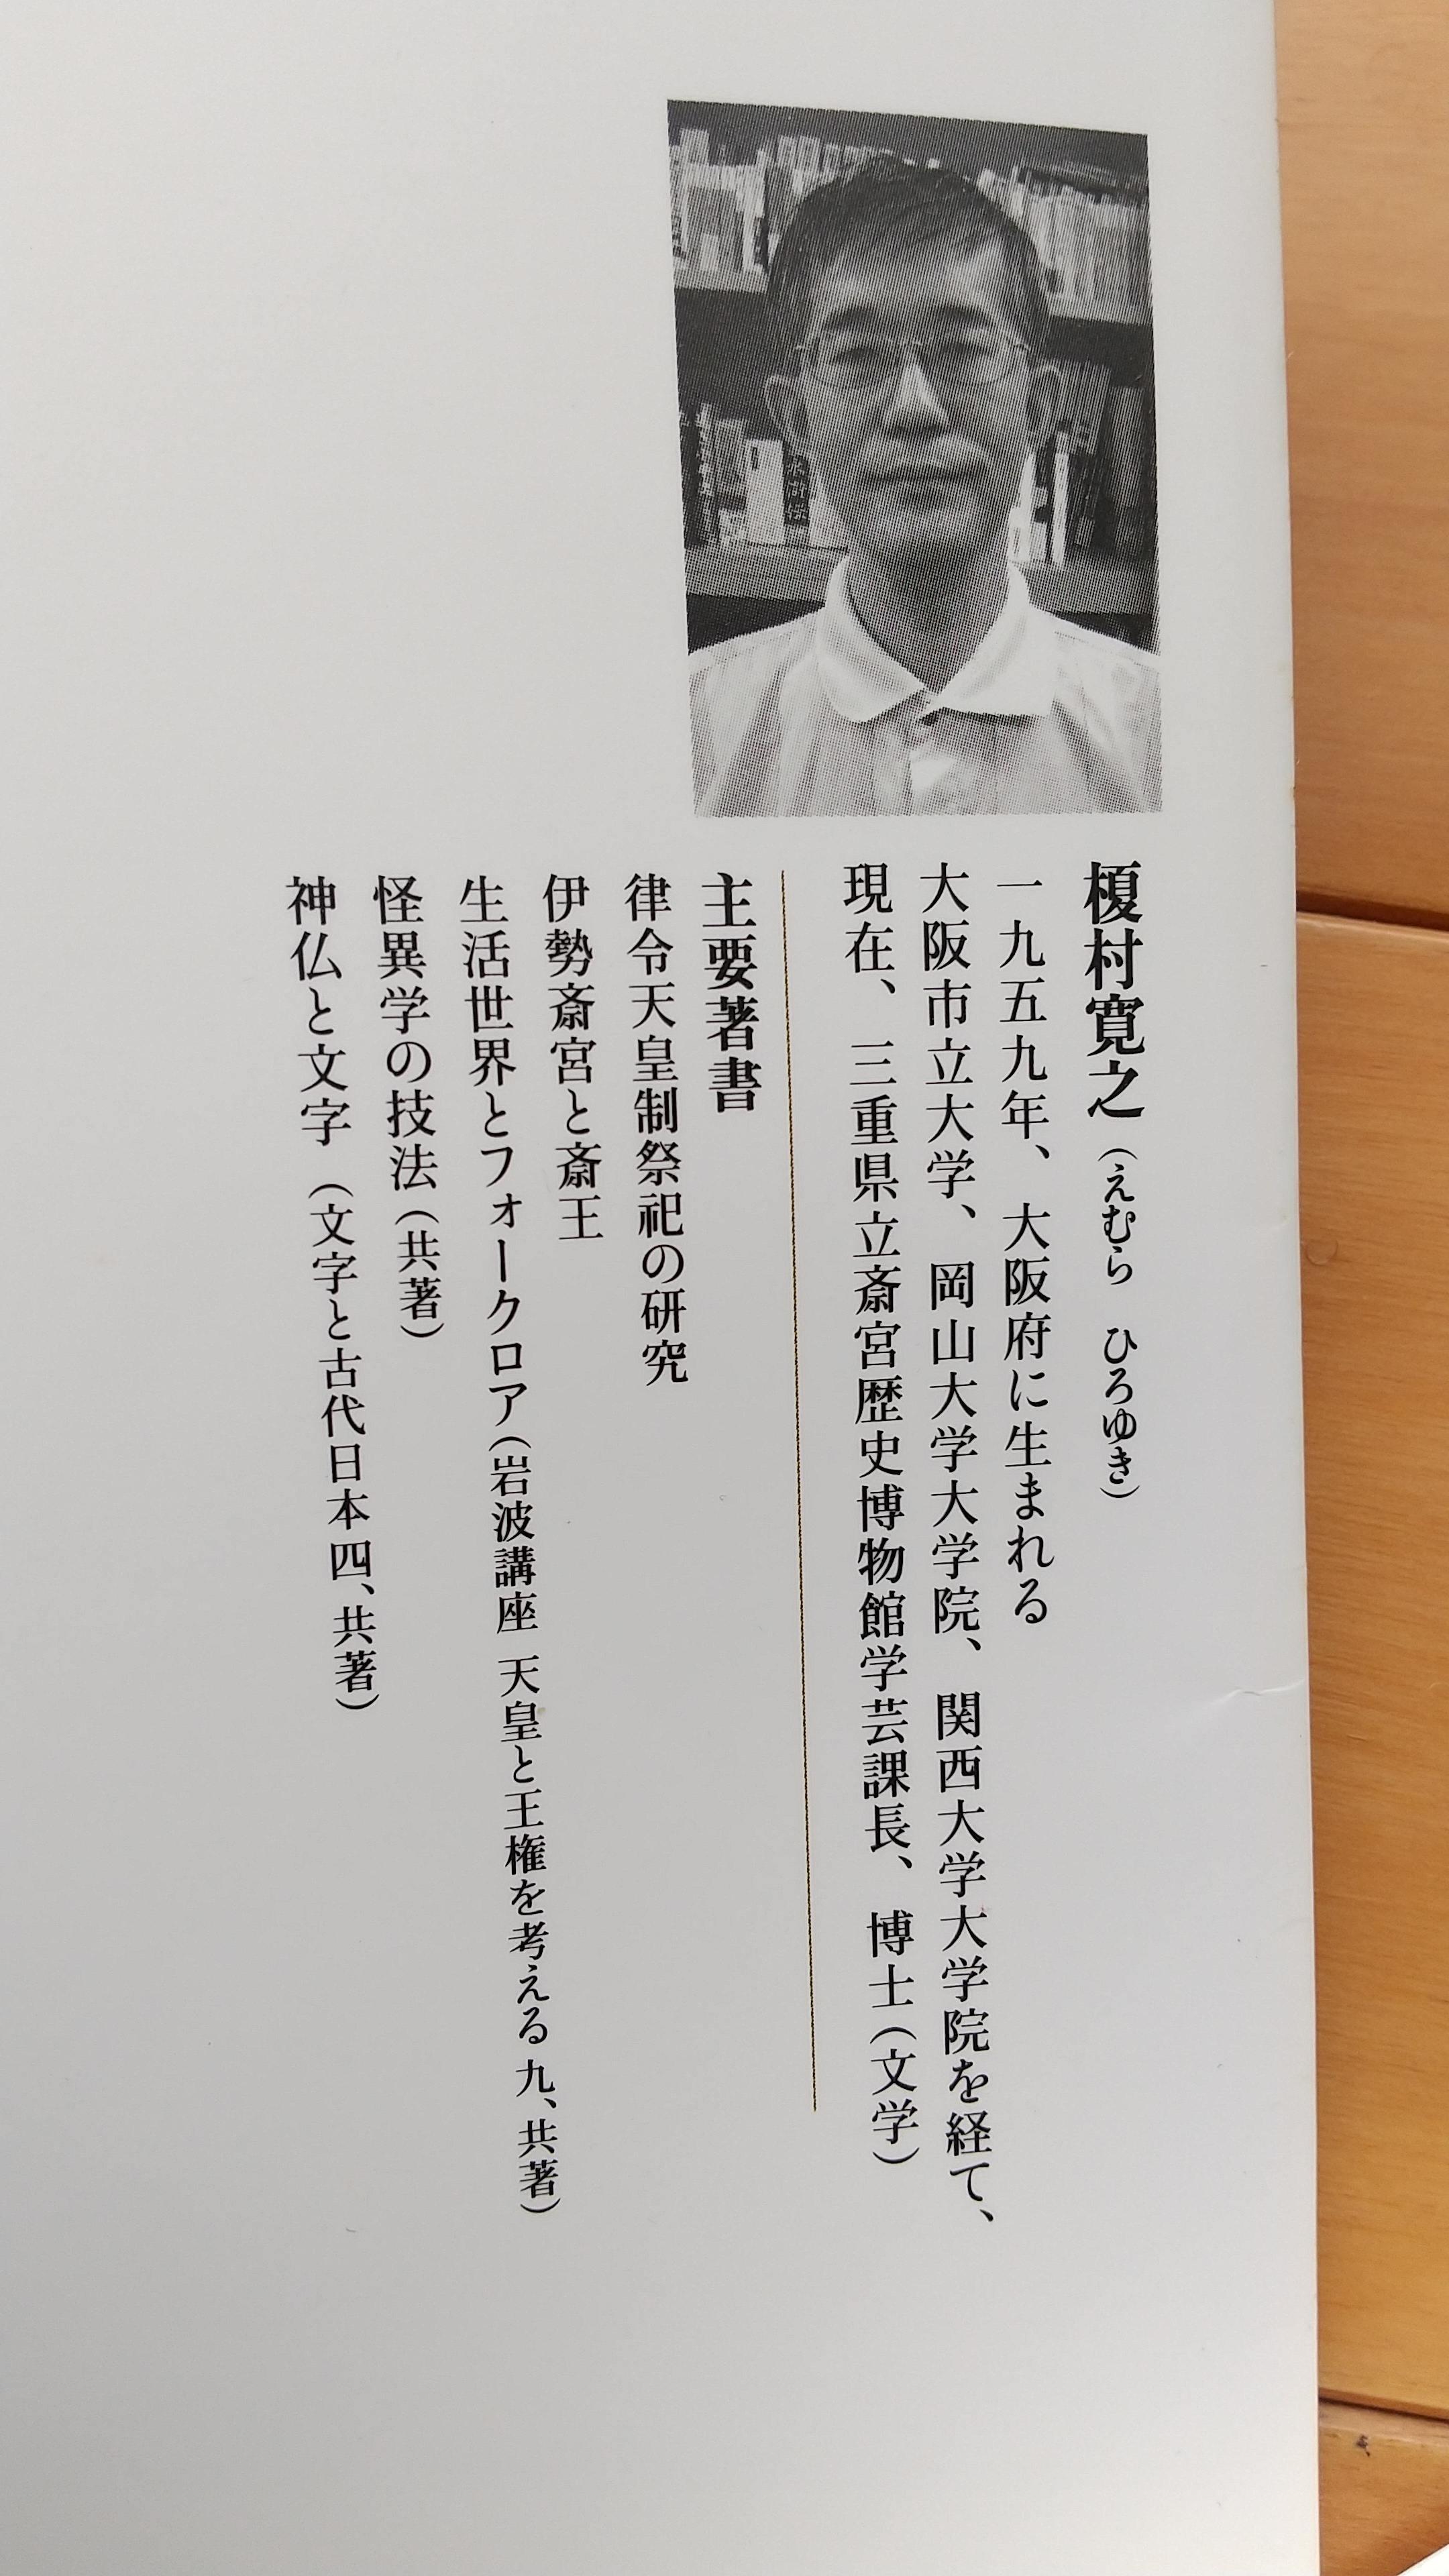 榎村寛之（えむら　ひろゆき）
一九五九年、大阪府に生まれる
大阪市立大学、岡山大学大学院、関西大学大学院を経て、
現在、三重県立斎宮歴史博物館学芸課長、博士（文学）
主要著書
律令天皇制祭祀の研究
伊勢斎宮と斎王
生活世界とフォークロア（岩波講座 天皇と王権を考える 九、共著）
怪異学の技法（共著）
神仏と文字（文字と古代日本 四、共著）
水滸伝